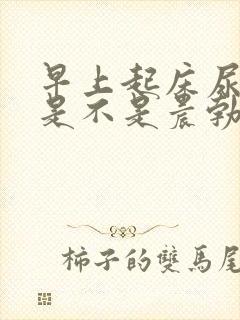 早上起床尿
是不是晨勃
柿子的雙馬尾